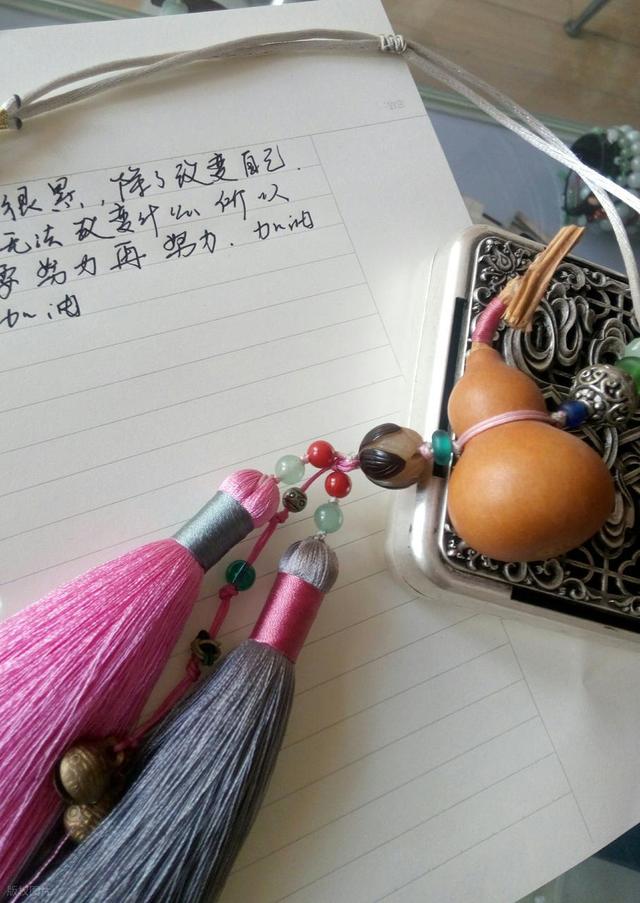 很累,,除了改变自己.
无法改变什么 所以
要努力再努力.加油
加油
版权图片